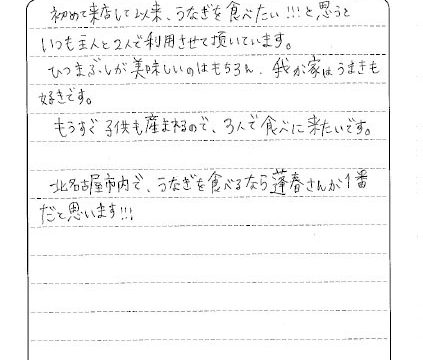 初めて来店して以来、うなぎを食べたい!!!と思うと
いつも主人と2人で利用させて頂いています。
ひつまぶしが美味しいのはもちろん、我が家はうまきも
好きです。
もうすぐ子供も産まれるので、3人で食べに来たいです。
北名古屋市内で、うなぎを食べるなら蓬春さんが1番
だと思います!!!